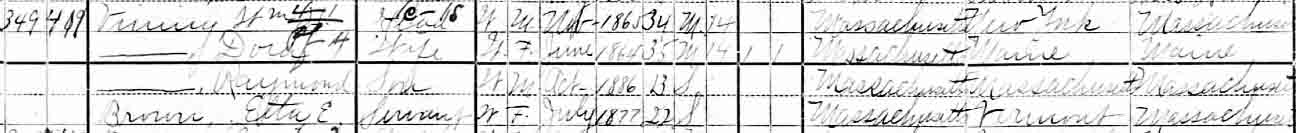 349 409 Wm Head W M 1865 34 M 14 Massachusetts New York Massachuset
—— H Wife W F June 1864 35 M 14 1 1 Massachusetts Maine Maine
——, Raymond Son W M Oct 1886 13 S Massachusetts Massachusetts Massachuset
Brown, Etta E. Servant W F July 1877 22 S Massachusetts Vermont Massachuset